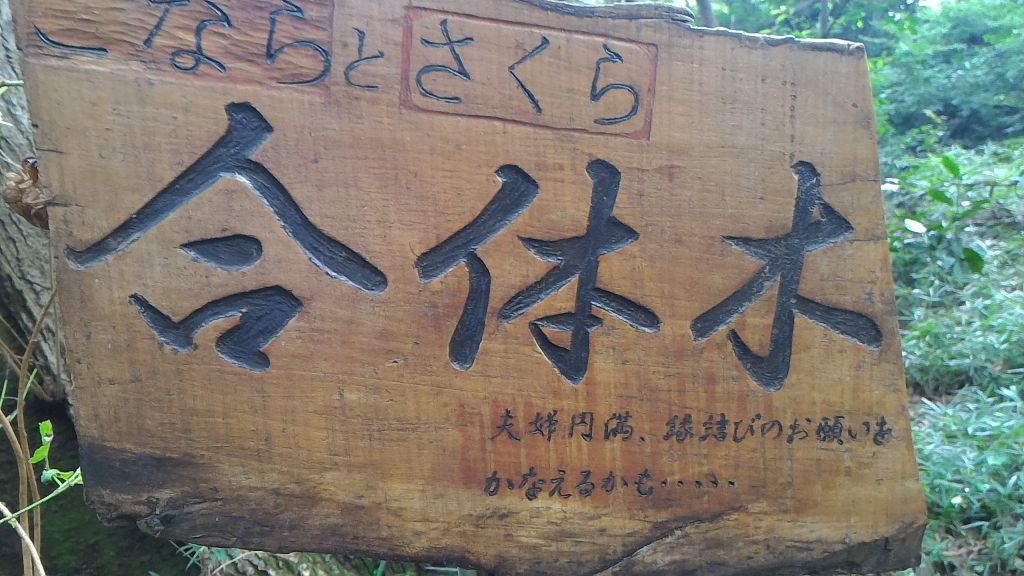 こならとさくら
合体木
夫婦円満、縁結びのお願いを
かなえるかも・・・・・